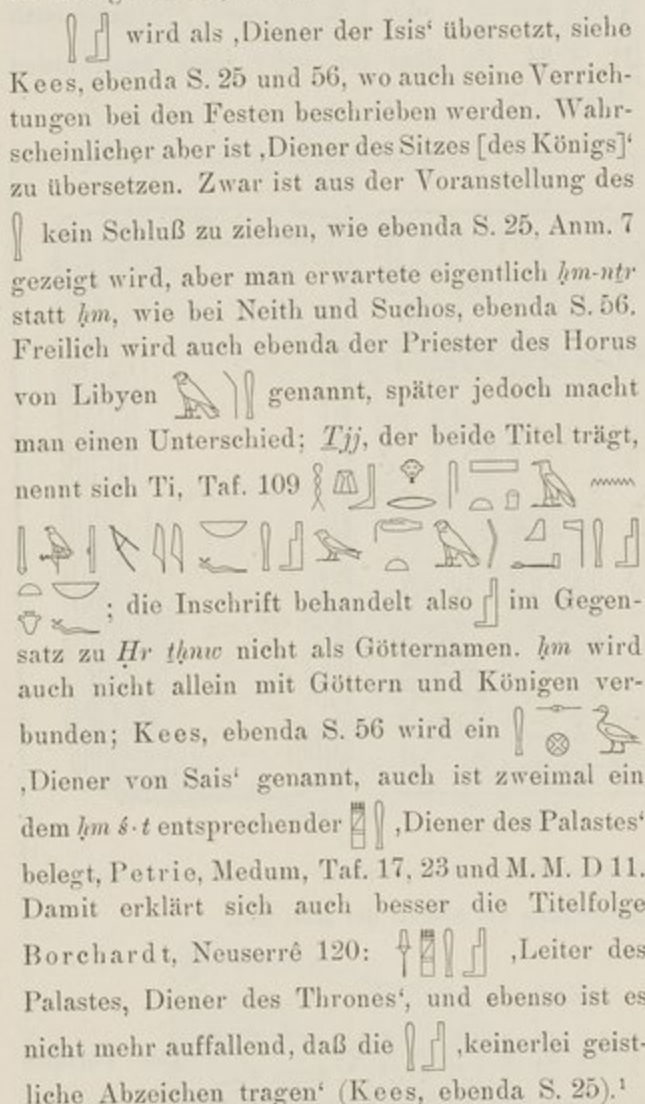 wird als ‚Diener der Isis‘ übersetzt, siehe
Kees, ebenda S. 25 und 56, wo auch seine Verrich-
tungen bei den Festen beschrieben werden. Wahr-
scheinlicher aber ist ‚Diener des Sitzes [des Königs]‘
zu übersetzen. Zwar ist aus der Voranstellung des
kein Schluß zu ziehen, wie ebenda S. 25, Anm. 7
gezeigt wird, aber man erwartete eigentlich ḥm-nṯr
statt ḥm, wie bei Neith und Suchos, ebenda S. 56.
Freilich wird auch ebenda der Priester des Horus
von Libyen genannt, später jedoch macht
man einen Unterschied; Ṯjj, der beide Titel trägt,
nennt sich Ti, Taf. 109
; die Inschrift behandelt also im Gegen-
satz zu Ḥr ṯḥnw nicht als Götternamen. ḥm wird
auch nicht allein mit Göttern und Königen ver-
bunden; Kees, ebenda S. 56 wird ein
‚Diener von Sais‘ genannt, auch ist zweimal ein
dem ḥm ś·t entsprechender ‚Diener des Palastes‘
belegt, Petrie, Medum, Taf. 17, 23 und M. M. D 11.
Damit erklärt sich auch besser die Titelfolge
Borchardt, Neuserrê 120: ‚Leiter des
Palastes, Diener des Thrones‘, und ebenso ist es
nicht mehr auffallend, daß die ‚keinerlei geist-
liche Abzeichen tragen‘ (Kees, ebenda S. 25).¹